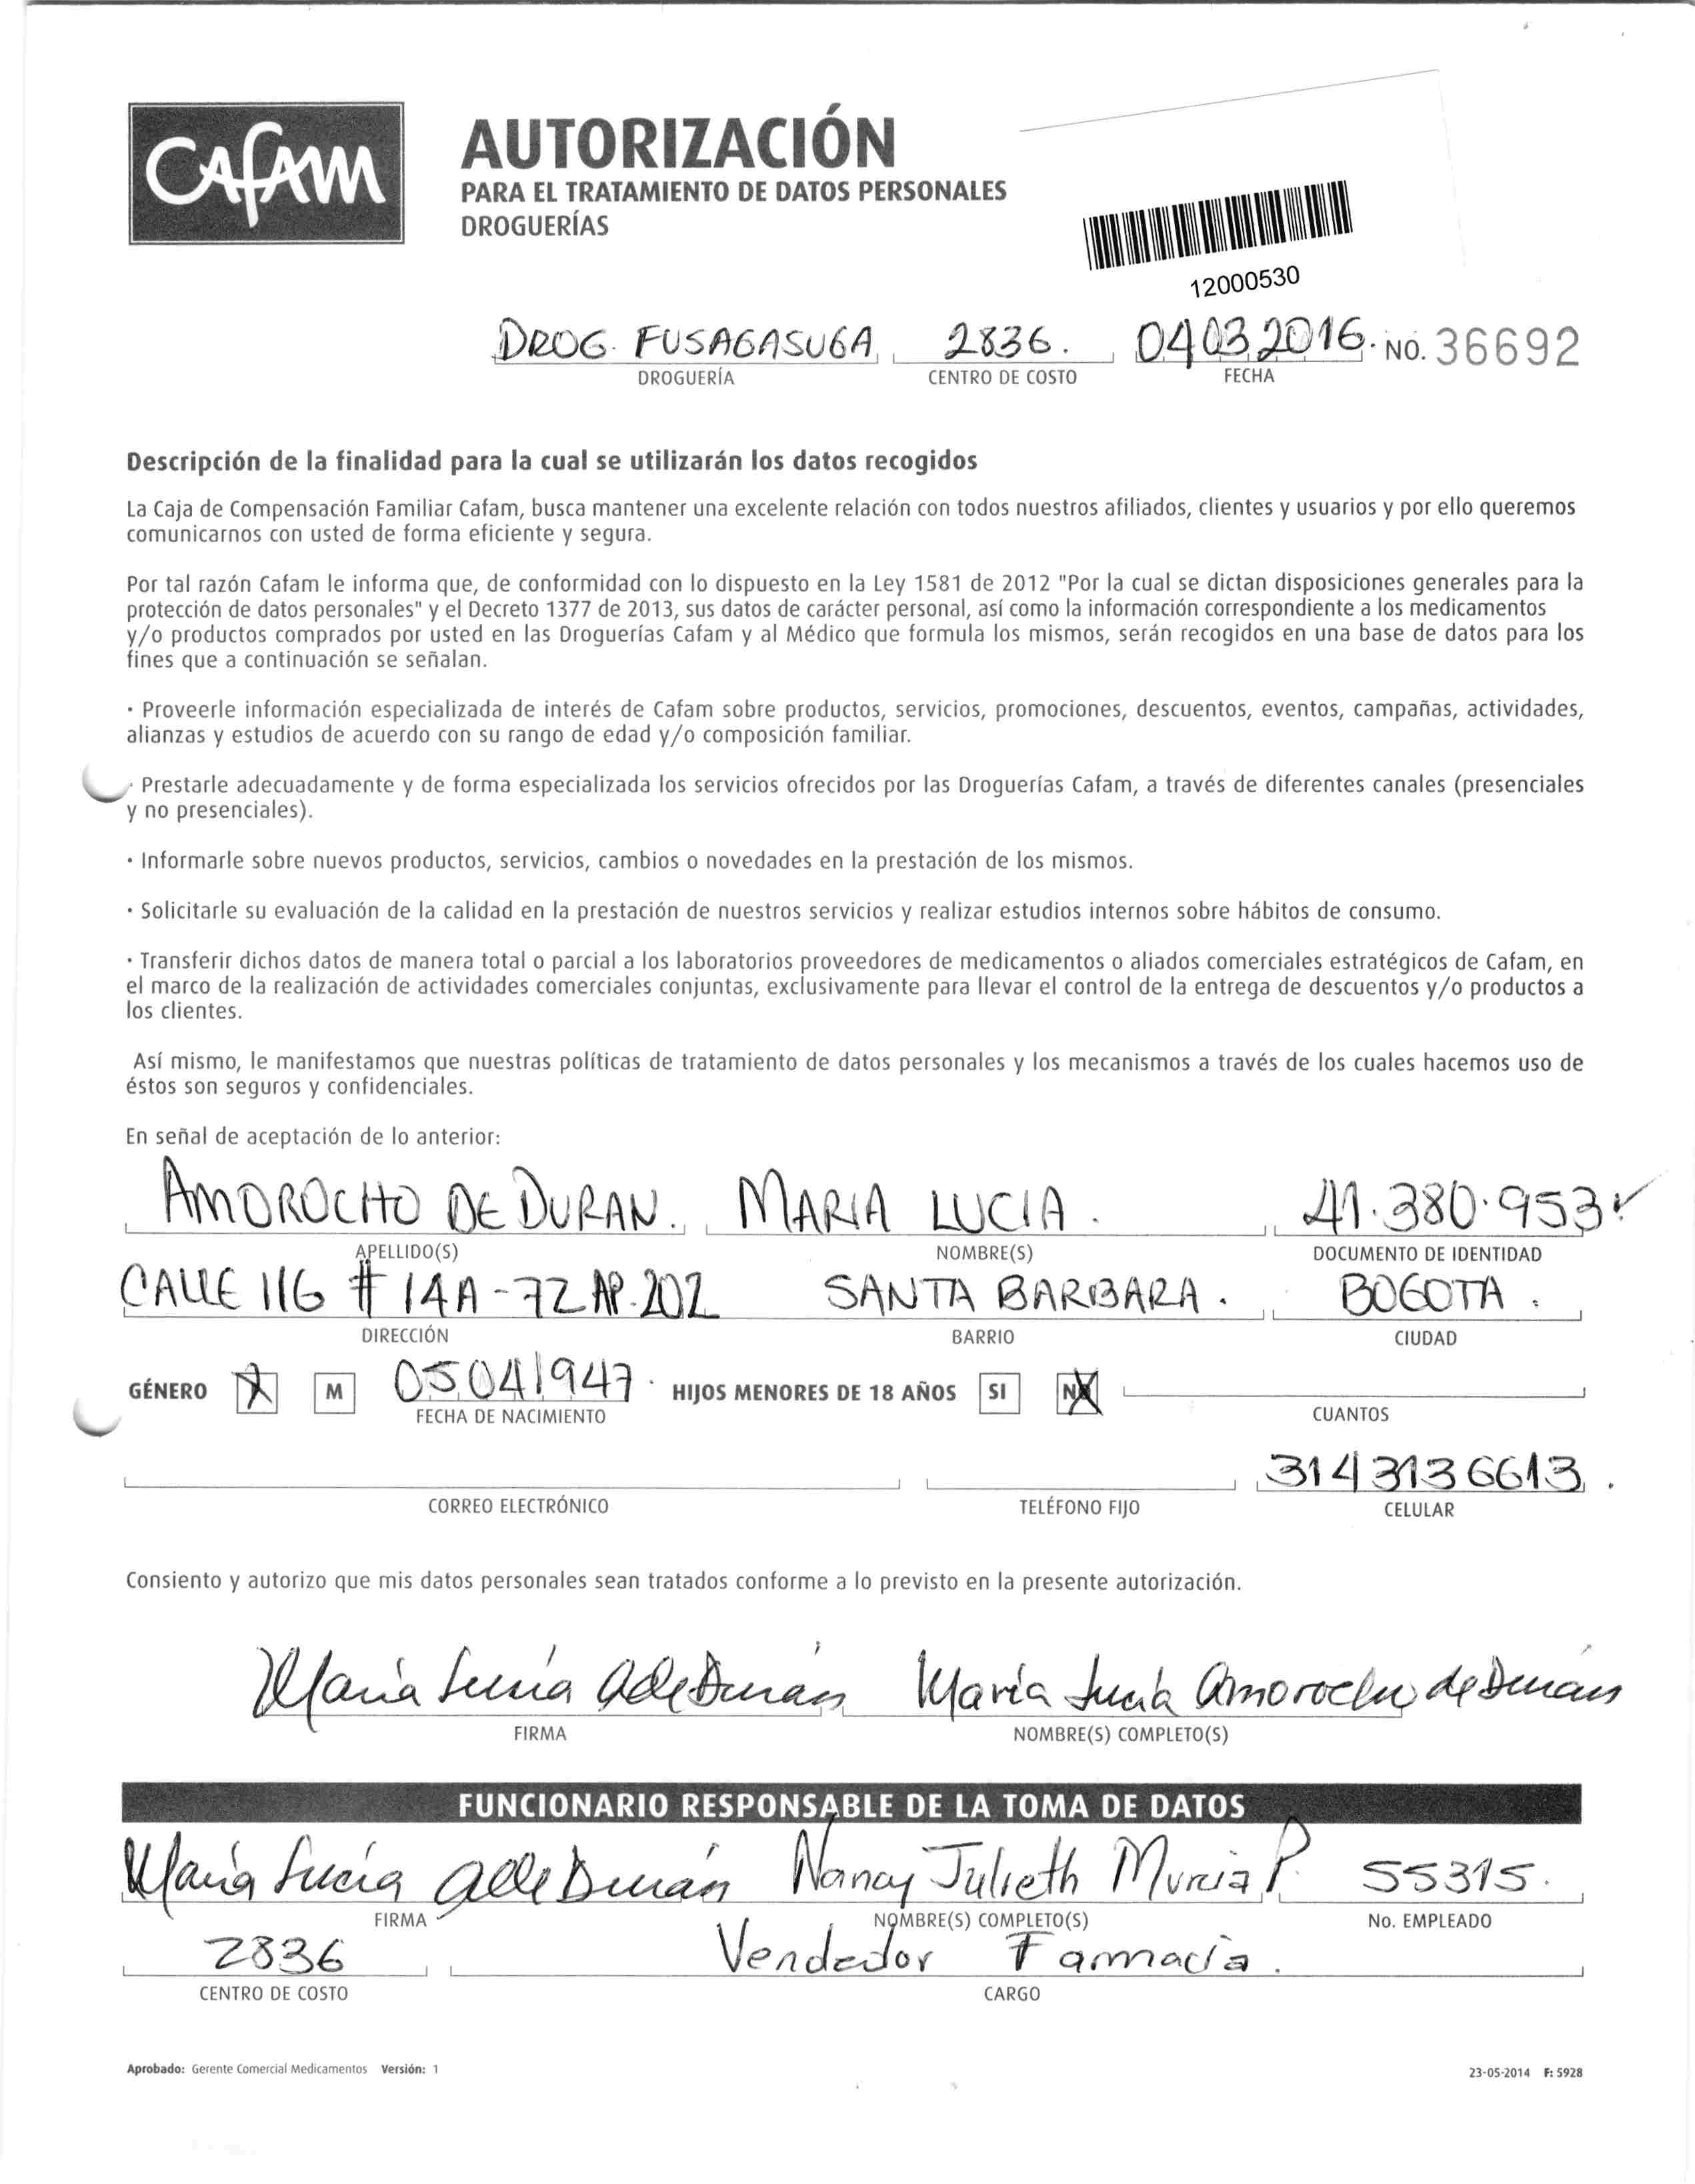 CAFAM
AUTORIZACIÓN
PARA EL TRATAMIENTO DE DATOS PERSONALES
DROGUERÍAS
12000530
DROG. FUSAGASUGA 2836. 04 03 2016. NO. 36692
DROGUERÍA CENTRO DE COSTO FECHA
Descripción de la finalidad para la cual se utilizarán los datos recogidos
La Caja de Compensación Familiar Cafam, busca mantener una excelente relación con todos nuestros afiliados, clientes y usuarios y por ello queremos
comunicarnos con usted de forma eficiente y segura.
Por tal razón Cafam le informa que, de conformidad con lo dispuesto en la Ley 1581 de 2012 "Por la cual se dictan disposiciones generales para la
protección de datos personales" y el Decreto 1377 de 2013, sus datos de carácter personal, así como la información correspondiente a los medicamentos
y/o productos comprados por usted en las Droguerías Cafam y al Médico que formula los mismos, serán recogidos en una base de datos para los
fines que a continuación se señalan.
· Proveerle información especializada de interés de Cafam sobre productos, servicios, promociones, descuentos, eventos, campañas, actividades,
alianzas y estudios de acuerdo con su rango de edad y/o composición familiar.
· Prestarle adecuadamente y de forma especializada los servicios ofrecidos por las Droguerías Cafam, a través de diferentes canales (presenciales
y no presenciales).
· Informarle sobre nuevos productos, servicios, cambios o novedades en la prestación de los mismos.
· Solicitarle su evaluación de la calidad en la prestación de nuestros servicios y realizar estudios internos sobre hábitos de consumo.
· Transferir dichos datos de manera total o parcial a los laboratorios proveedores de medicamentos o aliados comerciales estratégicos de Cafam, en
el marco de la realización de actividades comerciales conjuntas, exclusivamente para llevar el control de la entrega de descuentos y/o productos a
los clientes.
Así mismo, le manifestamos que nuestras políticas de tratamiento de datos personales y los mecanismos a través de los cuales hacemos uso de
éstos son seguros y confidenciales.
En señal de aceptación de lo anterior:
AMOROCHO DE DURAN. MARIA LUCIA. 41.380.953
APELLIDO(S) NOMBRE(S) DOCUMENTO DE IDENTIDAD
CALLE 116 # 14A-72 AP.202 SANTA BARBARA. BOGOTA.
DIRECCIÓN BARRIO CIUDAD
GÉNERO X M 05041947. HIJOS MENORES DE 18 AÑOS SI NO
FECHA DE NACIMIENTO CUANTOS
3143136613.
CORREO ELECTRÓNICO TELÉFONO FIJO CELULAR
Consiento y autorizo que mis datos personales sean tratados conforme a lo previsto en la presente autorización.
María Lucía A de Durán María Lucía Amorocho de Durán
FIRMA NOMBRE(S) COMPLETO(S)
FUNCIONARIO RESPONSABLE DE LA TOMA DE DATOS
María Lucía A de Durán Nancy Julieth Murcia P. 55315.
FIRMA NOMBRE(S) COMPLETO(S) No. EMPLEADO
2836 Vendedor Farmacia.
CENTRO DE COSTO CARGO
Aprobado: Gerente Comercial Medicamentos Versión: 1 23-05-2014 F: 5928